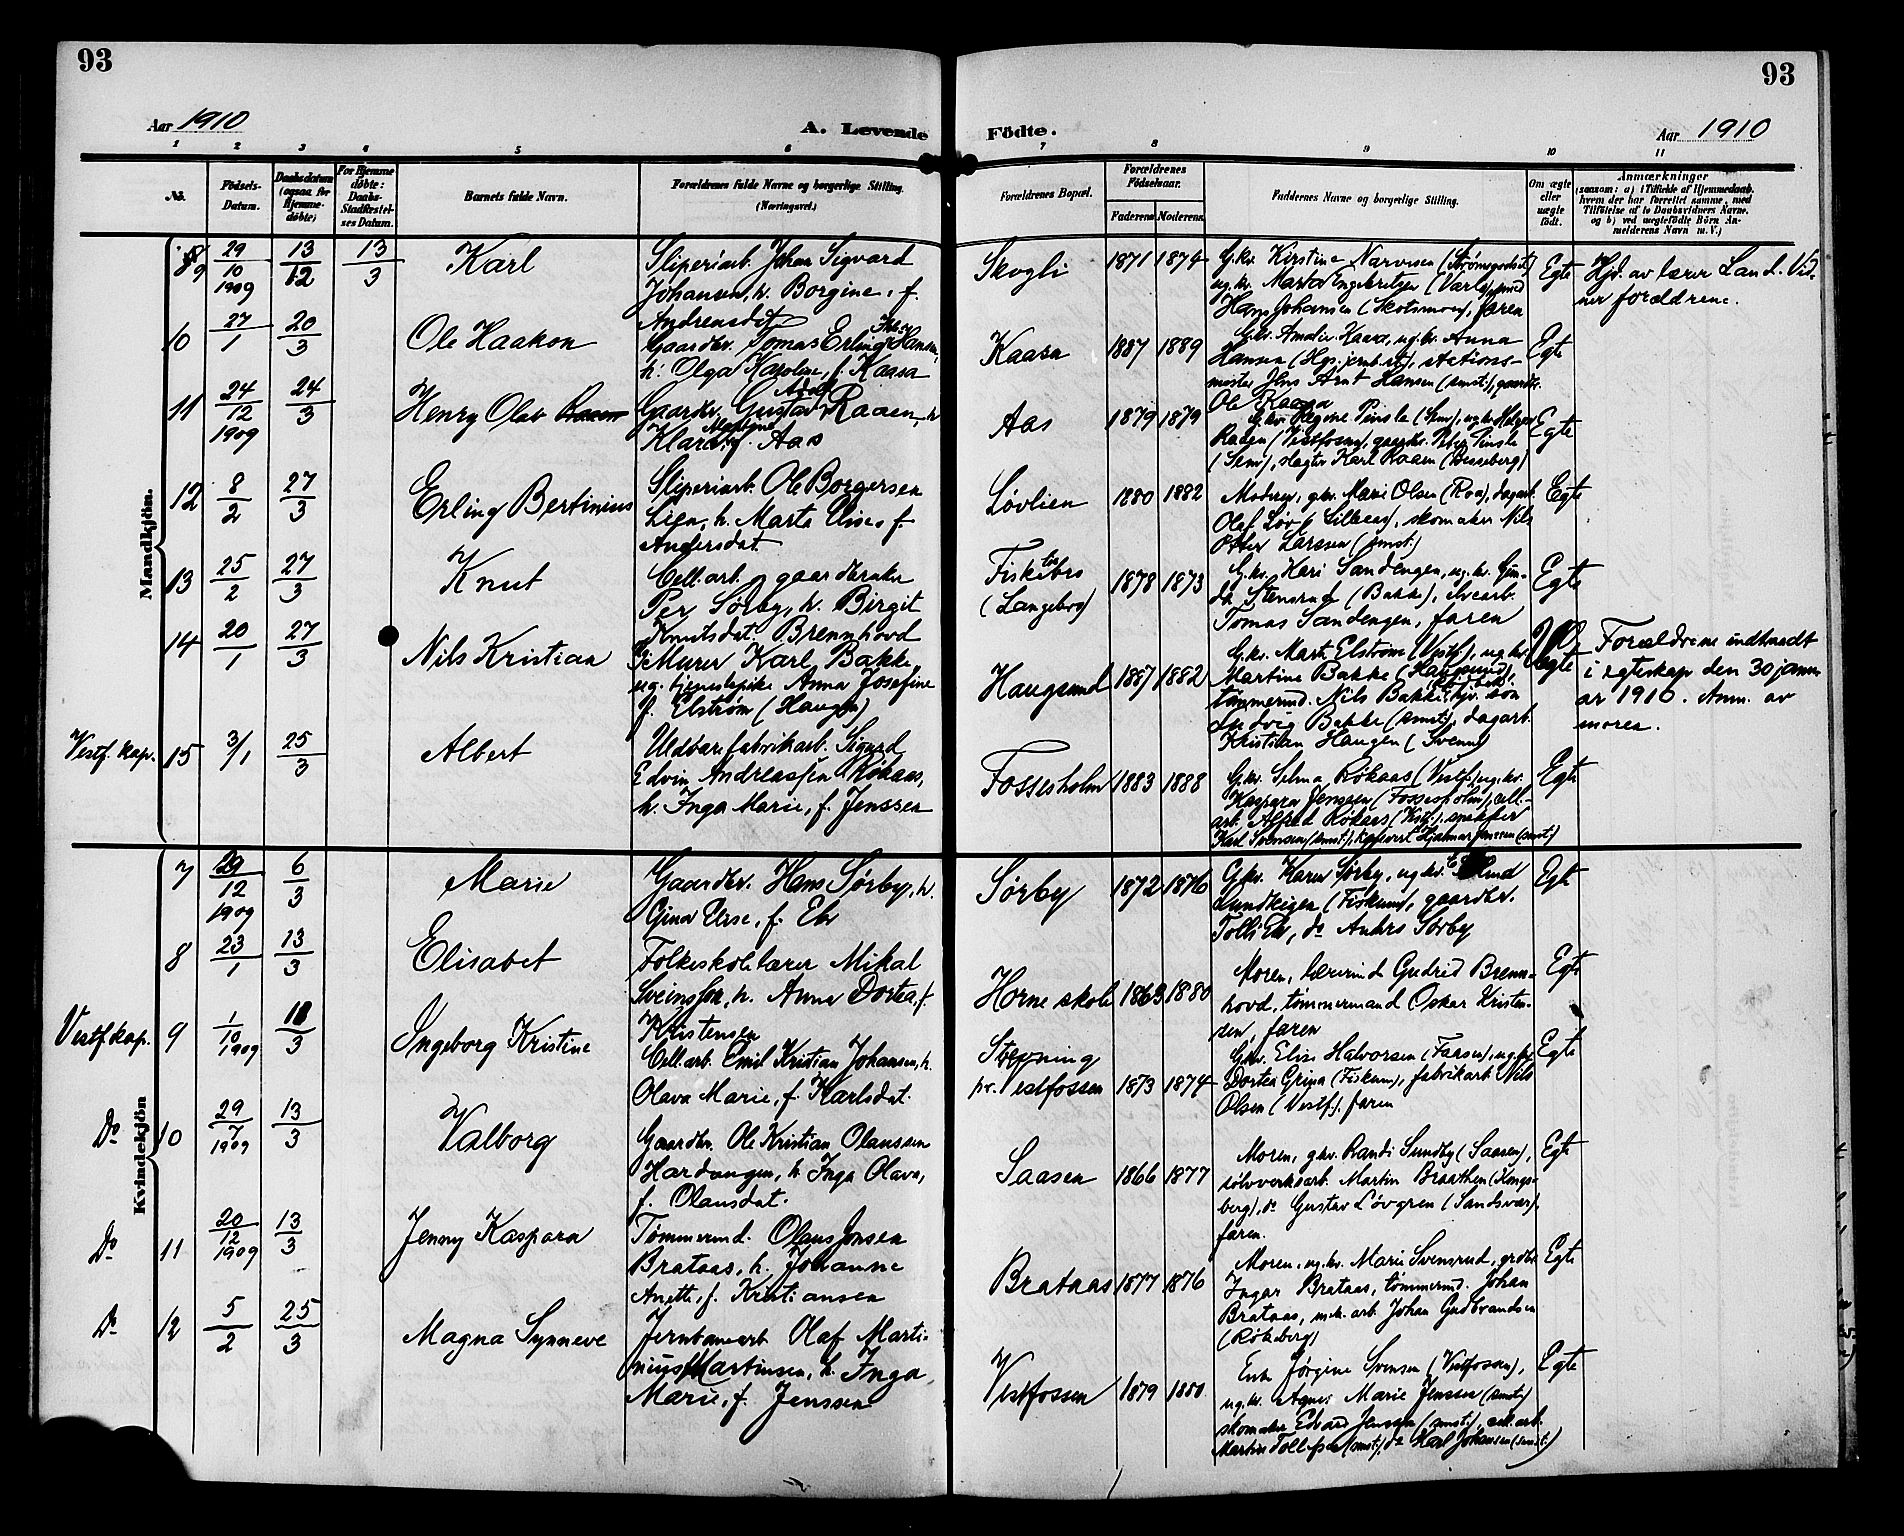 93
93
Aar 1910
A. Levende Födte.
Aar 1910
1 2 3 4 5 6 7 8 9 10 11
No.
Födsels-Datum.
Daabsdatum (ogsaa for Hjemmedöbte)
For Hjemmedöbte: Daabs-Stadfæstelses Datum.
Barnets fulde Navn.
Forældrenes fulde Navne og borgerlige Stilling. (Næringsvei.)
Forældrenes Bopæl.
Forældrenes Födselsaar.
Faderens Moderens
Faddernes Navne og borgerlige Stilling.
Om ægte eller uægte födt.
Anmærkninger
(saasom: a) i Tilfælde af Hjemmedaab,
hvem der har forrettet samme, med
Tilföielse af to Daabsvidners Navne,
og b) ved uegtefödte Börn Anmelderens Navn m. V.)
Mandkjön.
9 29/10 1909 13/12 13/3 Karl
Sliperiarb. Johan Sigvard
Johansen, h. Borgine, f.
Andreasdat
Skogli 1871 1874
Gkv. Kirstine Narvesen (Strömsgodset)
ug. kv. Marta Engebretsen
Hans Johansen (Skotsmoen), faren
Egte
Hjd. av lærer Land. Vid-
ner forældrene.
10 27/1 20/3 Ole Haakon
Gaardbr. Tomas Erling Hansen,
h. Olga Karoline, f. Kaasa
Kaasa 1887 1889
Gkv. Amalie Kaasa, ug. kv. Anna
Hansen (Hgs. jernb. st), stations-
mester Jens Arnt Hansen (smst.), gaardbr.
Ole Kaasa
Egte
11 24/12 1909 24/3 Henry Olav
Gaardbr. Gustav Adolf Raaen, h.
Klara f. Aas
Aas 1879 1879
Gkv. Regine Teinsle (Sem), ug. kv. Helga
Raaen (Vestfossen), gaardbr. Peter Teinsle
(Sem), slagter Karl Raaen (Besseberg)
Egte
12 8/2 27/3 Erling Bertinius
Sliperiarb. Ole Borgersen
Lien, h. Marte Elise, f.
Andersdat.
Løvlien 1880 1882
Moderen, gkv. Marie Olsen (Roa), dagarb.
Olaf Løv, skomaker Nils
Petter Larsen (smst.)
Egte
13 25/2 27/3 Knut
Cell. arb. gaardbruker
Per Sørby, h. Birgit
Knutsdat. Brennhovd
Fiskebro
(Langebro)
1878 1873
G. kv. Kari Sandengen, ug. kv. Gun-
da Stensrud (Bakke),
Tomas Sandengen, faren
Egte
14 20/1 27/3 Nils Kristian
Murer Karl Bakke,
ug. tjenestepike Anna Josefine
f. Elstrøm (Haugen)
Haugsund 1887 1882
G. kv. Marte Elstrøm (Vestf.), ug. kv.
Martine Bakke (Haugsund),
tømmermd. Nils Bakke
Ludvig Bakke (smst.), dagarb.
Kristian Haugen (Svenne)
Uegte
Forældrene indtraadt
i egteskap den 30 janu-
ar 1910. Anm. av
moren.
Vestf. kap. 15 3/1 25/3 Albert
Uldvarefabrikarb. Sigurd
Edvin Andreassen Røkaas,
h. Inga Marie, f. Jenssen
Fossesholm 1883 1888
G. kv. Selma Røkaas (Vestf.) ug. kv.
Kaspara Jenssen (Fossesholm), cell.-
arb. Alfred Røkaas (Vestf.), snekker
Karl Svensen (smst.), Hjalmar Jenssen (smst.)
Egte
Kvindekjön
7 29/12 1909 6/3 Marie
Gaardbr. Hans Sørby, h.
Gina Elise, f. Ek
Sørby 1872 1876
G. kv. Karen Sørby, ug. kv.
Sundleigen (Fiskum), gaardbr.
Tolli Ek, do Anders Sørby
Egte
8 23/1 13/3 Elisabet
Folkeskolelærer Mikal
Sveinsson, h. Anna Dortea, f.
Kristensen
Horne skole 1863 1880
Moren, lærerinde Gudrid Brenn-
hovd, tømmermand Oskar Kristen-
sen, faren
Egte
Vestf. kap. 9 1/10 1909 13/3 Ingeborg Kristine
Cell. arb. Emil Kristian Johansen, h.
Olava Marie, f. Karlsdat.
pr. Vestfossen 1873 1874
Gkv. Elise Halvorsen (Faasen), ug. kv.
Dortea Grina (Fiskum), fabrikarb. Nils
Olsen (Vestf.), faren
Egte
Do 10 29/7 1909 13/3 Valborg
Gaardbr. Ole Kristian Olaussen
Hardangen, h. Inga Olava,
f. Olausdat.
Saasen 1866 1877
Moren, gkv. Randi Sundby (Saasen),
sølvverksarb. Martin Braathen (Kongs-
berg), do Gustav Løvgren (Sandsvær),
faren.
Egte
Do 11 20/12 1909 13/3 Jenny Kaspara
Tømmermd. Olaus Jonsen
Brataas, h. Johanne
Anette, f. Kristiansen
Brataas 1877 1876
Moren, ug. kv. Marie Svensrud, grdbr.
Ingar Brataas, tømmermd. Johan
Brataas, mek. arb. Johan Gudbrandsen
(Røkeberg)
Egte
Do 12 5/2 25/3 Magna Synneve
Jernbanearb Olaf Marti-
nius Martinsen, h. Inga
Marie, f. Jenssen
Vestfossen 1879 1880
Enke Jørgine Svensen (Vestfossen),
ug. kv. Agnes Marie Jenssen (smst.)
skomaker Edvard Jenssen (smst.), cell. arb.
Martin Tollefsen (smst.), do Karl Johansen (smst.)
Egte